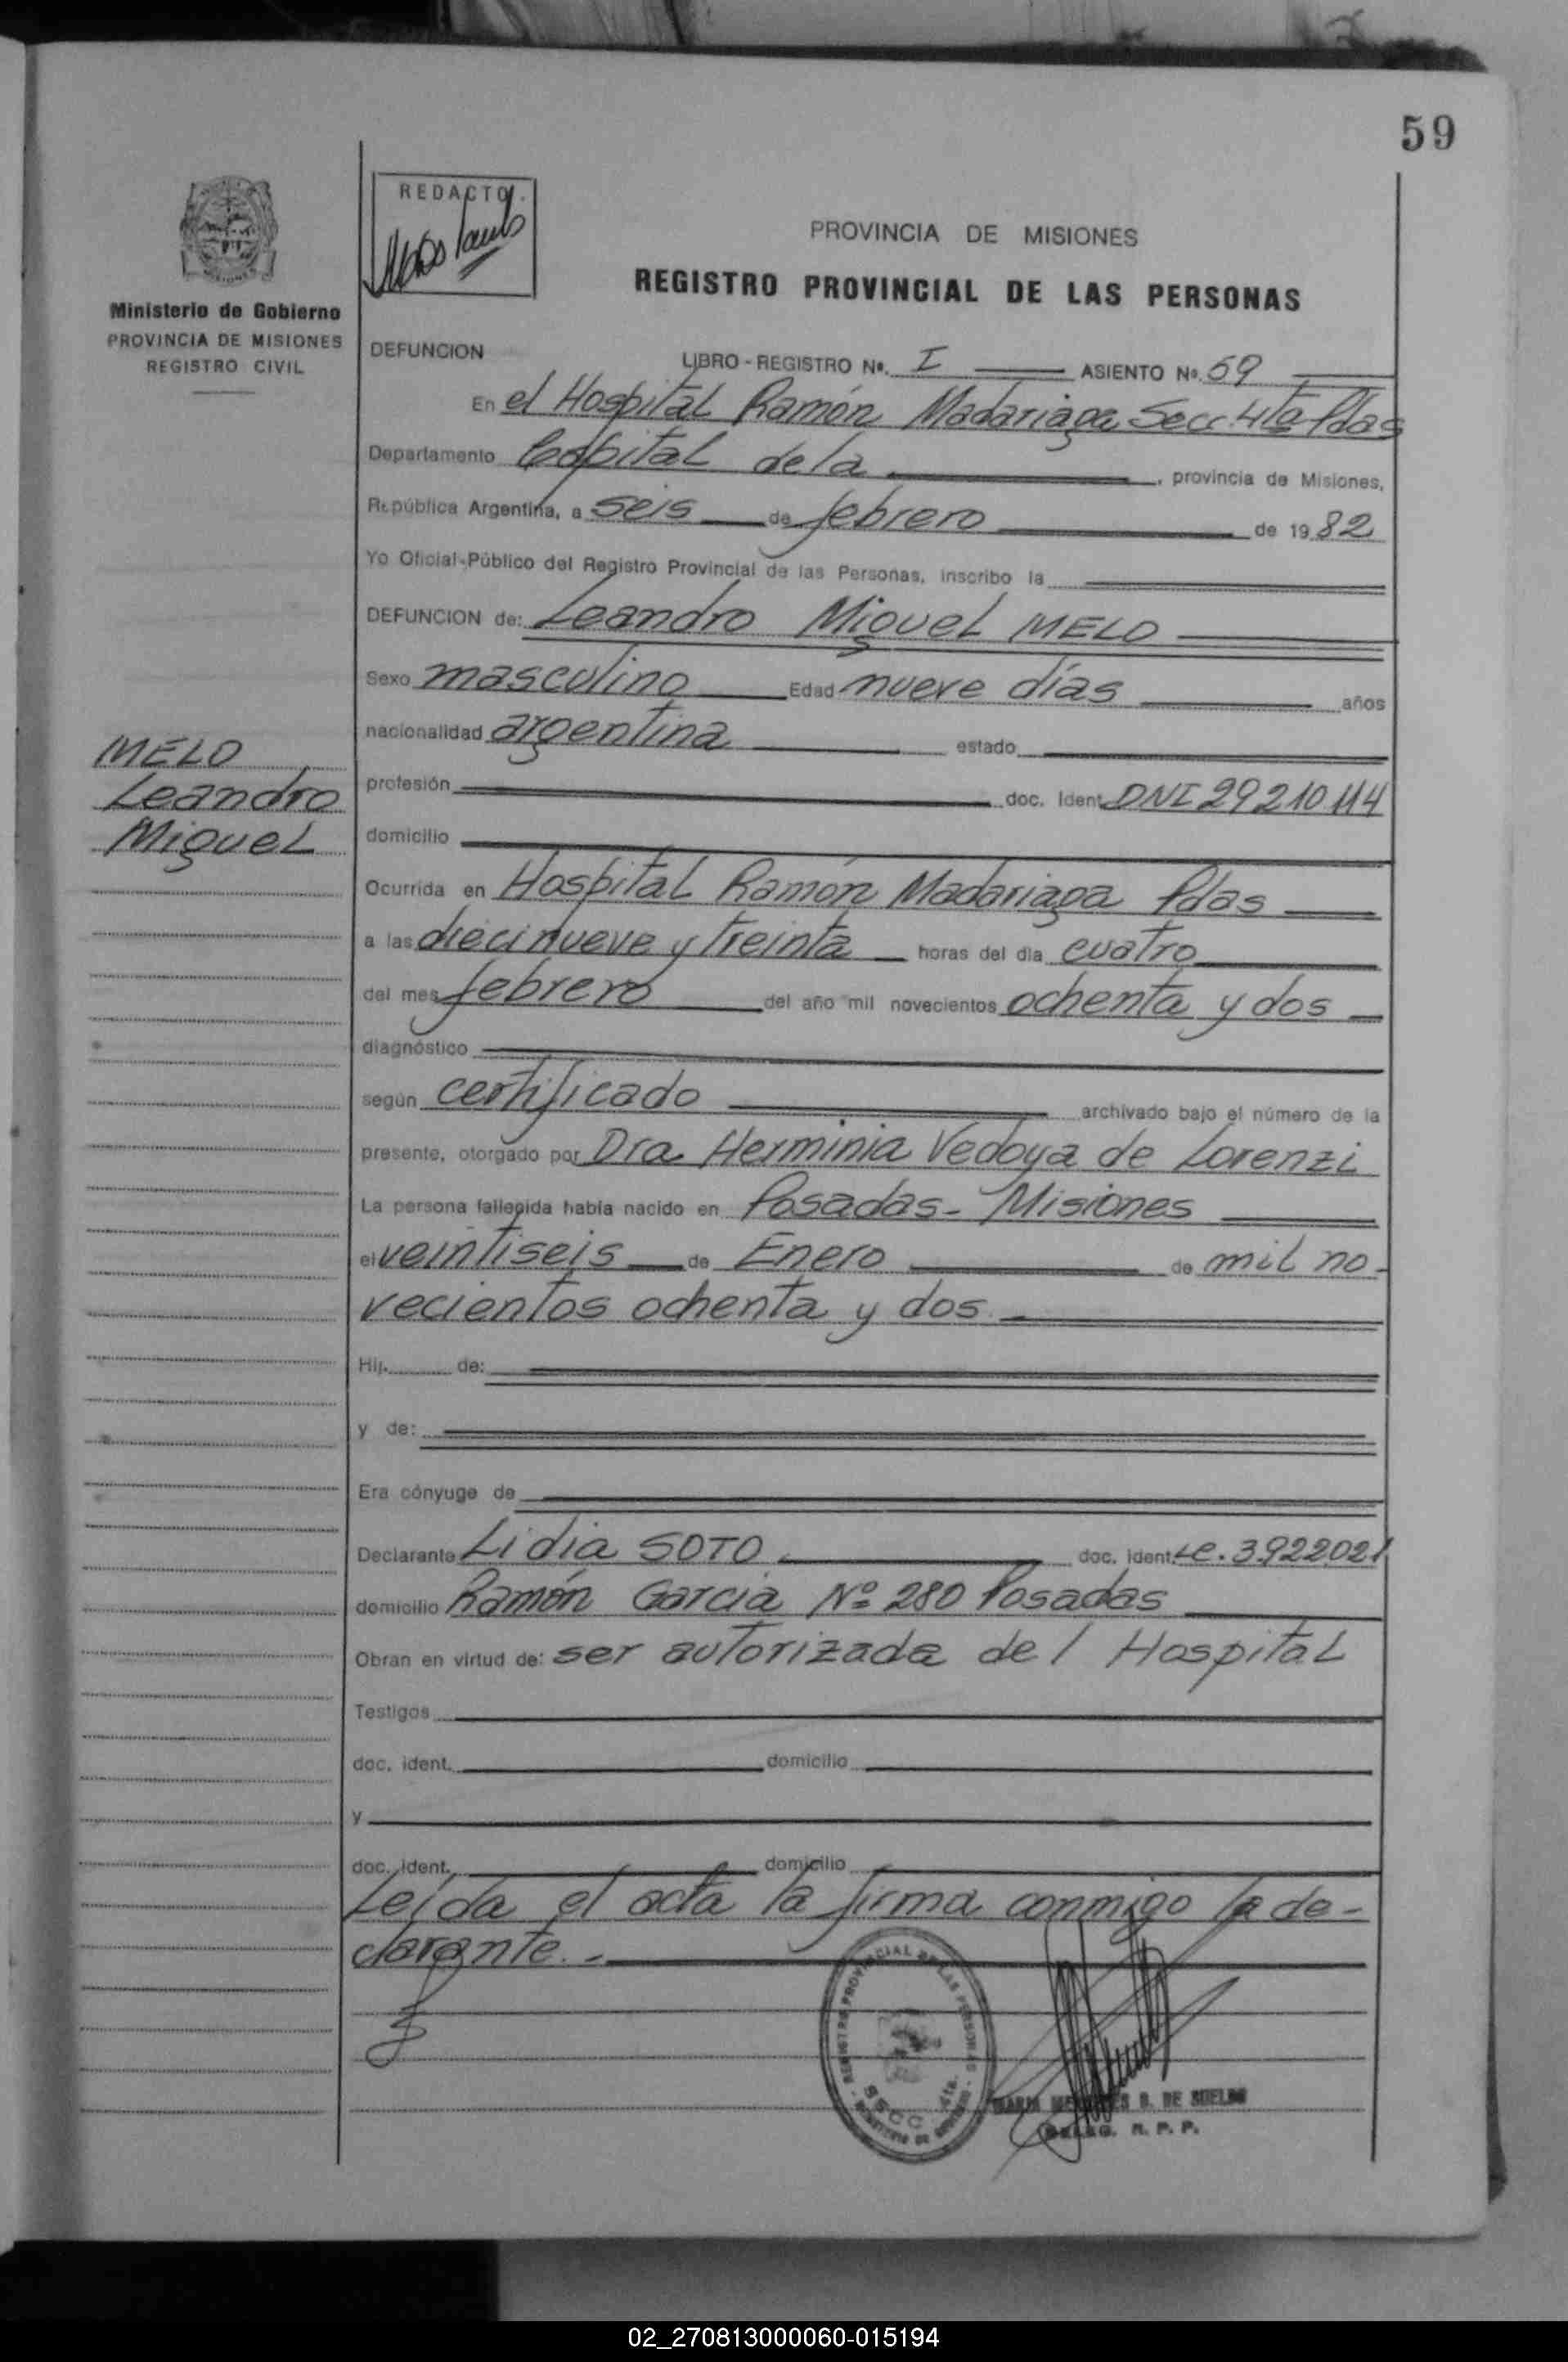 59
REDACTO.
PROVINCIA DE MISIONES
REGISTRO PROVINCIAL DE LAS PERSONAS
Ministerio de Gobierno
PROVINCIA DE MISIONES
REGISTRO CIVIL
DEFUNCION LIBRO - REGISTRO Nº. I ASIENTO Nº. 59
En el Hospital Ramón Madariaga Secc 4ta Pdas
Departamento Capital de la , provincia de Misiones,
República Argentina, a seis de febrero de 19 82
Yo Oficial Público del Registro Provincial de las Personas, inscribo la
DEFUNCION de: Leandro Miguel MELO
Sexo masculino Edad nueve días años
nacionalidad argentina estado
MELO
Leandro
Miguel
profesión doc. Ident DNI 29210114
domicilio
Ocurrida en Hospital Ramón Madariaga Pdas
a las diecinueve y treinta horas del dia cuatro
del mes febrero del año mil novecientos ochenta y dos
diagnóstico
según certificado archivado bajo el número de la
presente, otorgado por Dra Herminia Vedoya de Lorenzi
La persona fallecida habia nacido en Posadas - Misiones
el veintiseis de Enero de mil no-
vecientos ochenta y dos.
Hij. de:
y de:
Era cónyuge de
Declarante Lidia SOTO doc. ident. Lc. 3922021
domicilio Ramón Garcia Nº 280 Posadas
Obran en virtud de: ser autorizada del Hospital
Testigos
doc. ident. domicilio
y
doc. ident. domicilio
Leída el acta la firma conmigo la de-
clarante. -
REGISTRO PROVINCIAL DE LAS PERSONAS
SECC. 4ta.
S. DE SUELDO
DELEG. R. P. P.
02_270813000060-015194